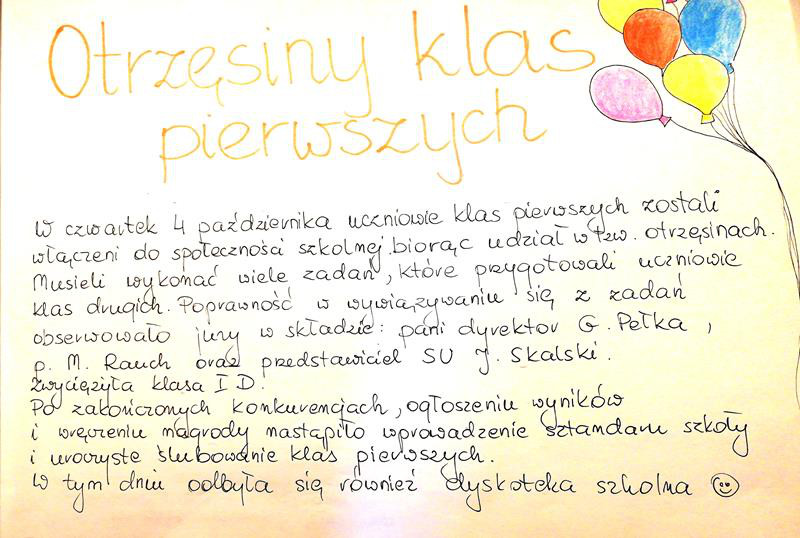 Otrzęsiny klas
pierwszych
W czwartek 4 października uczniowie klas pierwszych zostali
włączeni do społeczności szkolnej, biorąc udział w tzw. otrzęsinach.
Musieli wykonać wiele zadań, które przygotowali uczniowie
klas drugich. Poprawność w wywiązywaniu się z zadań
obserwowało jury w składzie: pani dyrektor G. Pełka,
p. M. Rauch oraz przedstawiciel SU J. Skalski.
Zwyciężyła klasa I D.
Po zakończonych konkurencjach, ogłoszeniu wyników
i wręczeniu nagrody nastąpiło wprowadzenie sztandaru szkoły
i uroczyste ślubowanie klas pierwszych.
W tym dniu odbyła się również dyskoteka szkolna ☺